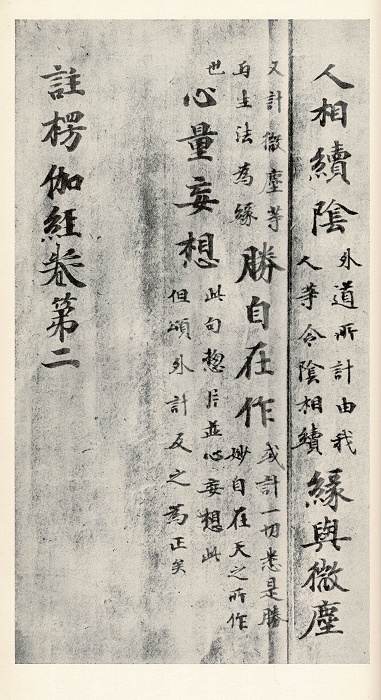 人相續陰
外道所計由我
人等令陰相續
緣與微塵
又計微塵等
与生法為緣
勝自在作
或計一切悉是勝
妙自在天之所作
也
心量妄想
此句惣斥並心妄想此
但頌外計反之為正矣
註楞伽経卷第二